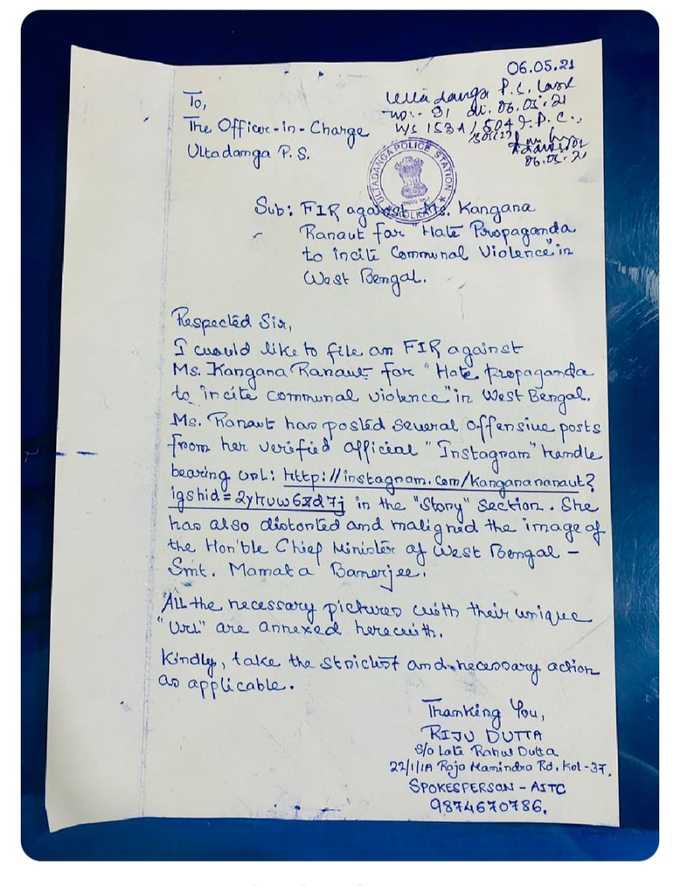 06.05.21
Ultadanga P.S. Case
no:- 91 dt. 06.05.21
u/s 153A/504 I.P.C.,
06.05.21
To,
The Officer-in-Charge
Ultadanga P.S.
ULTADANGA POLICE STATION
KOLKATA
Sub: FIR against Ms. Kangana
Ranaut for "Hate Propaganda
to incite Communal Violence" in
West Bengal.
Respected Sir,
I would like to file an FIR against
Ms. Kangana Ranaut for "Hate propaganda
to incite communal violence" in West Bengal.
Ms. Ranaut has posted several offensive posts
from her verified official "Instagram" handle
bearing url: http://instagram.com/kanganaranaut?
igshid=2yhuw6xd7j in the "Story" section. She
has also distorted and maligned the image of
the Hon'ble Chief Minister of West Bengal –
Smt. Mamata Banerjee.
All the necessary pictures with their unique
"Url" are annexed herewith.
Kindly, take the strictest and necessary action
as applicable.
Thanking You,
RIJU DUTTA
S/o Late Rahul Dutta
22/1/1A Raja Manindra Rd. Kol-37.
SPOKESPERSON - AITC
9874670786.